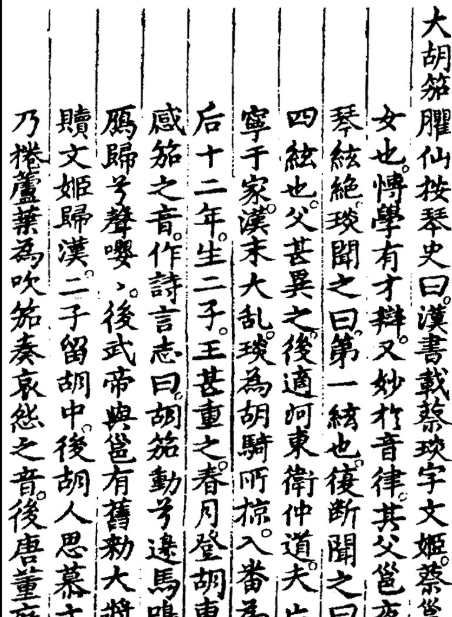 大胡笳臞仙按琴史曰漢書載蔡琰字文姬蔡邕
女也博學有才辯又妙於音律其父邕夜
琴絃絶琰聞之曰第一絃也復斷聞之曰
四絃也父甚異之後適河東衛仲道夫亡
寧于家漢末大乱琰為胡騎所掠入番為
后十二年生二子王甚重之春月登胡車
感笳之音作詩言志曰胡笳動兮邊馬鳴
鴈歸兮聲嚶〻後武帝與邕有舊勑大將
贖文姬歸漢二子留胡中後胡人思慕文
乃捲蘆葉為吹笳奏哀怨之音後唐董庭